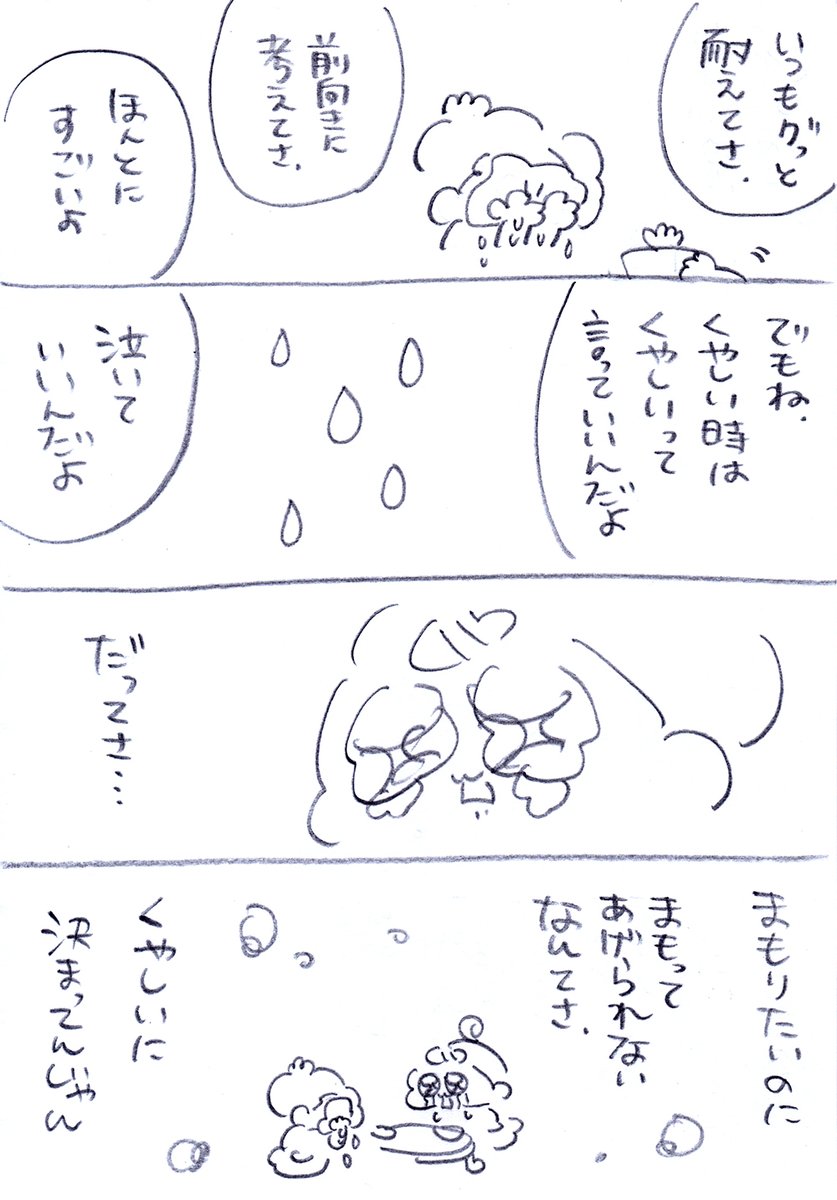 いつもグっと
耐えてさ、
前向きに
考えてさ、
ほんとに
すごいよ
でもね、
くやしい時は
くやしいって
言っていいんだよ
泣いて
いいんだよ
だってさ…
まもりたいのに
まもって
あげられない
なんてさ、
くやしいに
決まってんじゃん